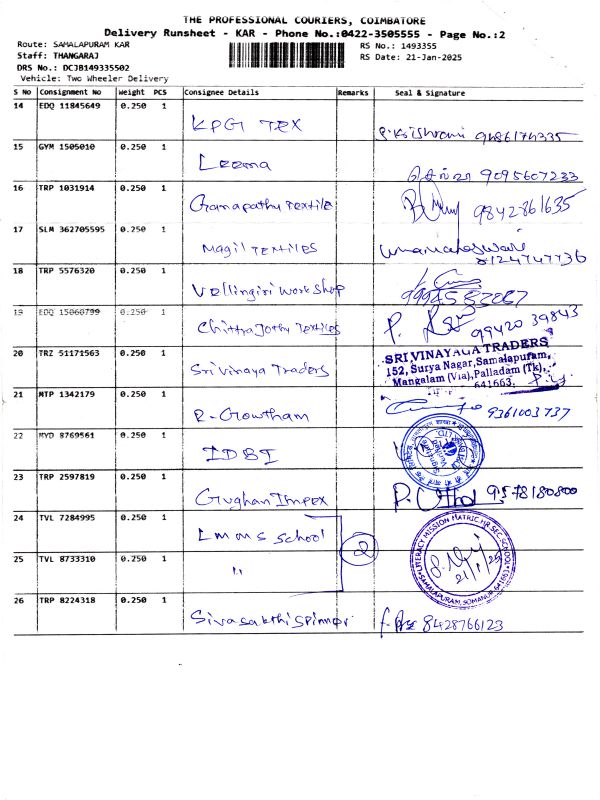 THE PROFESSIONAL COURIERS, COIMBATORE
Delivery Runsheet - KAR - Phone No.:0422-3505555 - Page No.:2
Route: SAMALAPURAM KAR
RS No.: 1493355
Staff: THANGARAJ
RS Date: 21-Jan-2025
DRS No.: DCJB149335502
Vehicle: Two Wheeler Delivery
S No Consignment No Weight PCS Consignee Details Remarks Seal & Signature
14 EDQ 11845649 0.250 1 KPG TEX 9486174335
15 GYM 1505010 0.250 1 Leema 9095607233
16 TRP 1031914 0.250 1 Ganapathy Textile 9842861635
17 SLM 362705595 0.250 1 Magil Textiles Umamaheswari
8124747736
18 TRP 5576320 0.250 1 Vellingiri Work Shop
19 EDQ 15060799 0.250 1 Chittra Jothy Textiles 99420 39843
20 TRZ 51171563 0.250 1 Sri Vinaya Traders
SRI VINAYAGA TRADERS
152, Surya Nagar, Samalapuram,
Mangalam (Via), Palladam (Tk),
641663.
21 MTP 1342179 0.250 1 R-Gowtham 9361003737
22 MYD 8769561 0.250 1 IDBI
23 TRP 2597819 0.250 1 Gughan Impex 9578180800
24 TVL 7284995 0.250 1 LMMS School
2
25 TVL 8733310 0.250 1 "
LITERACY MISSION MATRIC HR SEC SCHOOL
SAMALAPURAM, SOMANUR 641663
21/1/25
26 TRP 8224318 0.250 1 Sivasakthi Spinner 8428766123